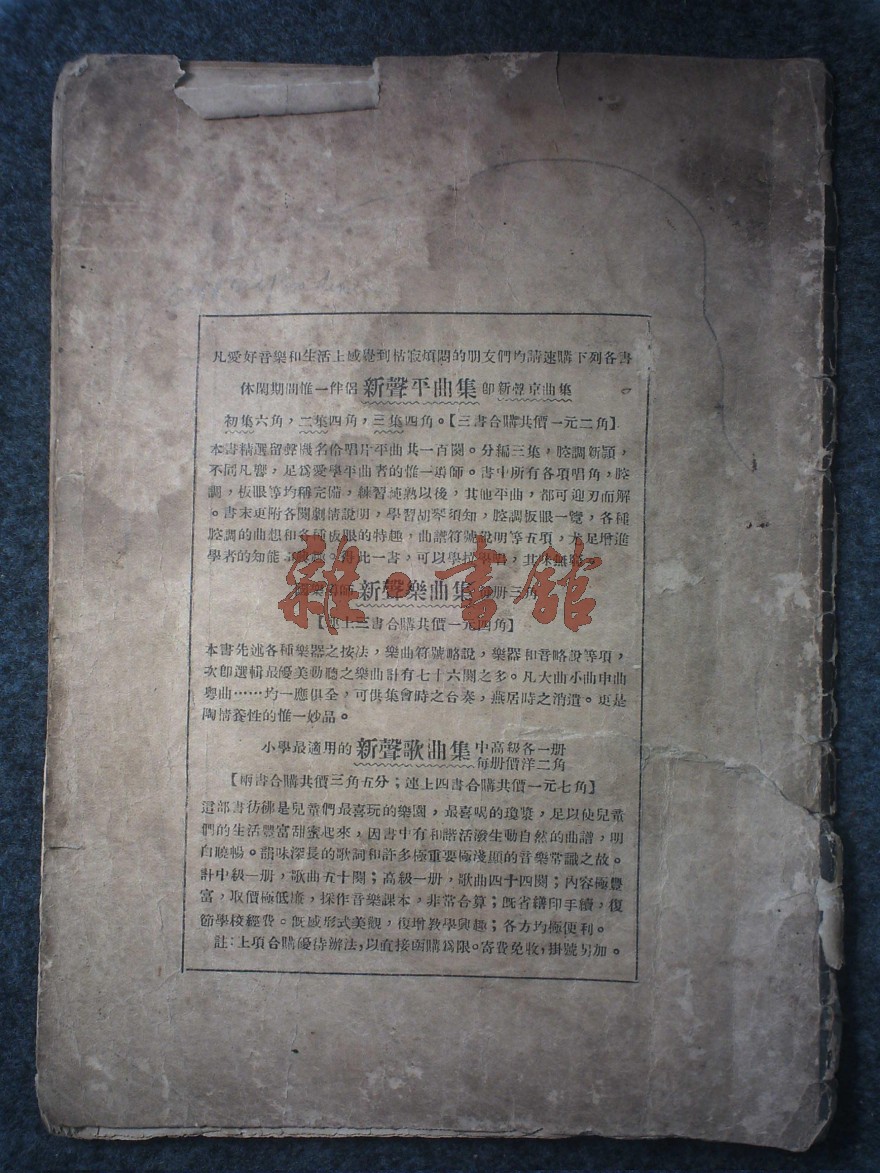 凡愛好音樂和生活上感覺到枯寂煩悶的朋友們均請速購下列各書
休閑期間惟一伴侶 新聲平曲集 卽新聲京曲集
初集六角，二集四角，三集四角。【三書合購共價一元二角】
本書精選留聲機名伶唱片平曲共一百闋。分編三集，腔調新頴，
不同凡響，足爲愛學平曲者的惟一導師。書中所有各項唱角，腔
調，板眼等均稱完備，練習純熟以後，其他平曲，都可迎刃而解
。書末更附各闋劇情說明，學習胡琴須知，腔調板眼一覽，各種
腔調的曲想和各種板眼的特趣，曲譜符號說明等五項，尤足增進
學者的知能 趣。得此一書，可以學 學唱，其味無
新聲樂曲集 每册三角
【連上三書合購共價一元四角】
本書先述各種樂器之按法，樂曲符號略說，樂器和音略說等項，
次卽選輯最優美動聽之樂曲計有七十六闋之多。凡大曲小曲申曲
粵曲……均一應俱全，可供集會時之合奏，燕居時之消遣。更是
陶情養性的惟一妙品。
小學最適用的 新聲歌曲集 中高級各一册
每册價洋二角
【兩書合購共價三角五分；連上四書合購共價一元七角】
這部書彷彿是兒童們最喜玩的樂園，最喜呷的瓊漿，足以使兒童
們的生活豐富甜蜜起來，因書中有和諧活潑生動自然的曲譜，明
白曉暢。韻味深長的歌詞和許多極重要極淺顯的音樂常識之故。
計中級一册，歌曲五十闋；高級一册，歌曲四十四闋；內容極豐
富，取價極低廉，採作音樂課本，非常合算；旣省繕印手續，復
節學校經費。旣感形式美觀，復增教學興趣；各方均極便利。
註：上項合購優待辦法，以直接函購爲限。寄費免收，掛號另加。
雜·書館